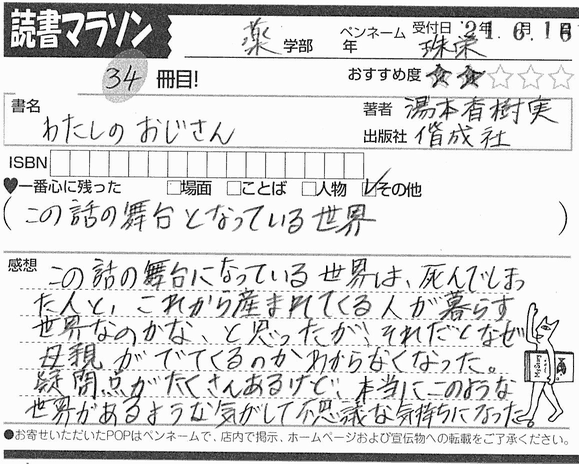 読書マラソン
薬 学部 年 ペンネーム 珠栄 受付日 21年6月16日
34 冊目! おすすめ度 ★★☆☆☆
書名 わたしのおじさん
著者 湯本香樹実
出版社 偕成社
ISBN
♥一番心に残った □場面 □ことば □人物 ☑その他
(この話の舞台となっている世界)
感想 この話の舞台になっている世界は、死んでしまっ
た人と、これから産まれてくる人が暮らす
世界なのかな、と思ったが、それだとなぜ
母親がでてくるのかわからなくなった。
疑問点がたくさんあるけど、本当にこのような
世界があるような気がして不思議な気持ちになった。
●お寄せいただいたPOPはペンネームで、店内で掲示、ホームページおよび宣伝物への転載をご了承ください。